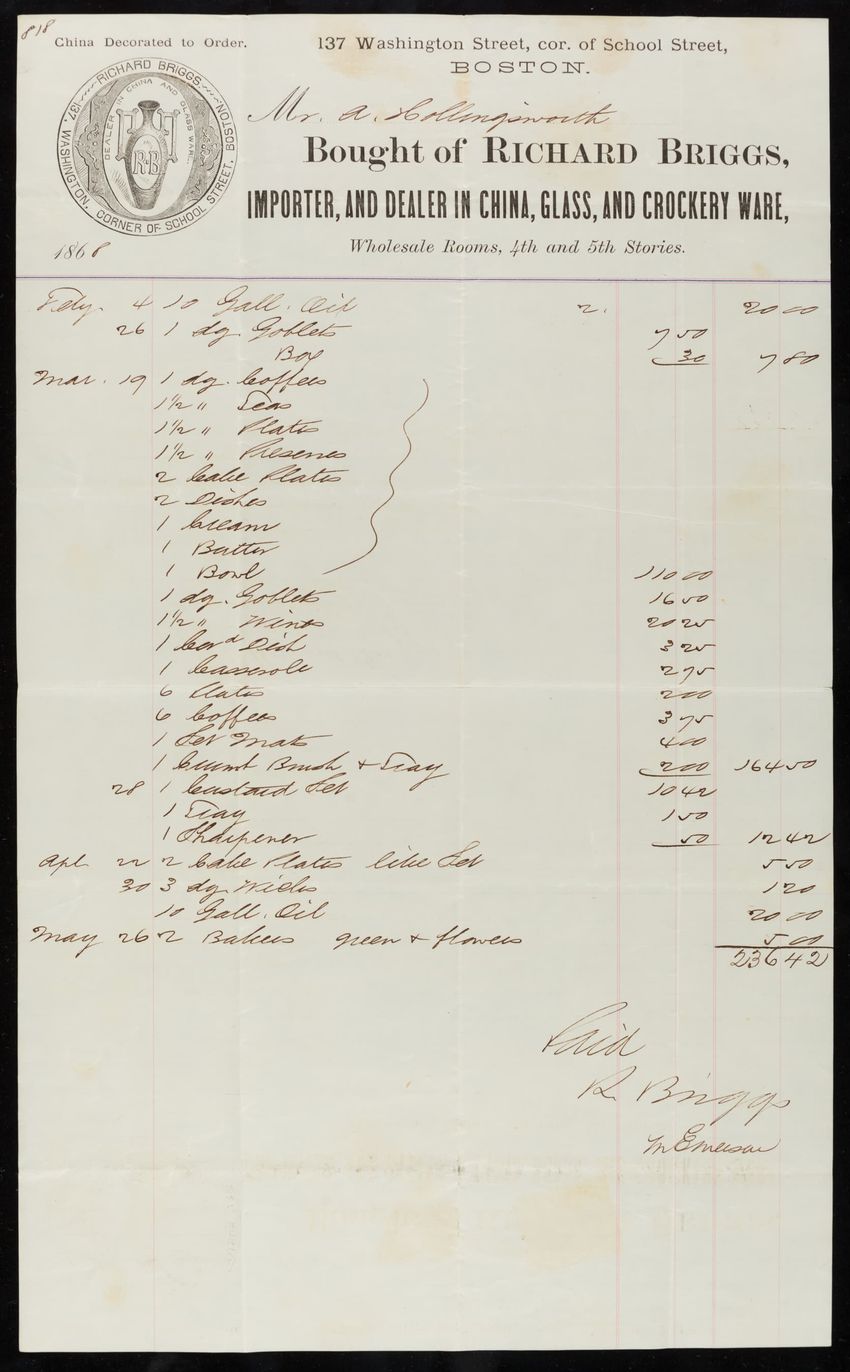 818
China Decorated to Order.
137 Washington Street, cor. of School Street,
BOSTON.
RICHARD BRIGGS
137. WASHINGTON. CORNER OF SCHOOL STREET. BOSTON
DEALER IN CHINA AND GLASS WARE.
RB
Mr. A. Hollingsworth
Bought of RICHARD BRIGGS,
IMPORTER, AND DEALER IN CHINA, GLASS, AND CROCKERY WARE,
Wholesale Rooms, 4th and 5th Stories.
1868
Feby. 4 10 Gall. Oil 2. 20 00
26 1 dz. Goblets 7 50
Box 30 7 80
Mar. 19 1 dz. Coffees
1 1/2 " Teas
1 1/2 " Plates
1 1/2 " Preserves
2 Cake Plates
2 Dishes
1 Cream
1 Butter
1 Bowl 110 00
1 dz. Goblets 16 50
1 1/2 " Wines 20 25
1 Covd Dish 3 25
1 Casserole 2 75
6 Plates 2 00
6 Coffees 3 75
1 Set Mats 4 00
1 Crumb Brush + Tray 2 00 164 50
28 1 Custard Set 10 42
1 Tray 1 50
1 Sharpener 50 12 42
Apl. 22 2 Cake Plates like Set 5 50
30 3 dz. Wicks 1 20
10 Gall. Oil 20 00
May 26 2 Bakers green + flowers 5 00
236 42
Paid
R. Briggs
M Emerson